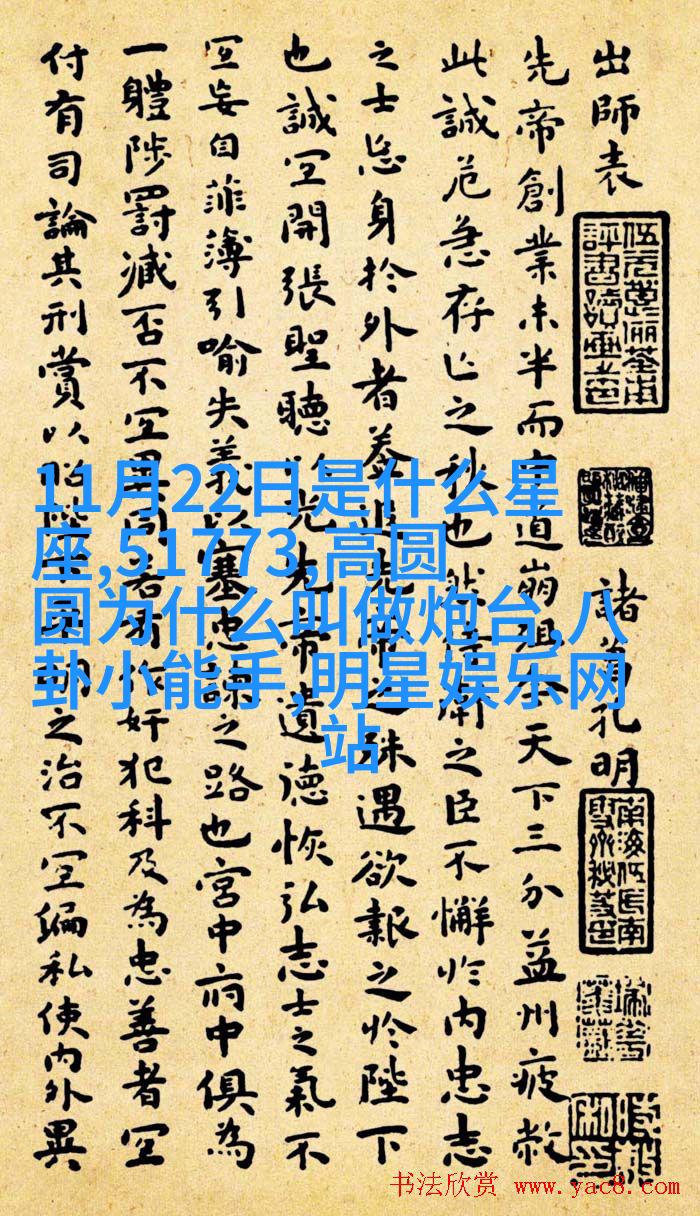 出師表
諸葛孔明
先帝創業未半而中道崩殂今天下三分益州疲敝
此誠危急存亡之秋也然侍衛之臣不懈於內忠志
之士忘身於外者蓋追先帝之殊遇欲報之於陛下
也誠宜開張聖聽以光先帝遺德恢弘志士之氣不
宜妄自菲薄引喻失義以塞忠諫之路也宮中府中俱為
一體陟罰臧否不宜異同若有作奸犯科及為忠善者宜
付有司論其刑賞以昭陛下平明之治不宜偏私使內外異
11月22日是什么星
座,51773,高圆
圆为什么叫做炮台,八
卦小能手,明星娱乐网
站
书法欣赏 www.yac8.com